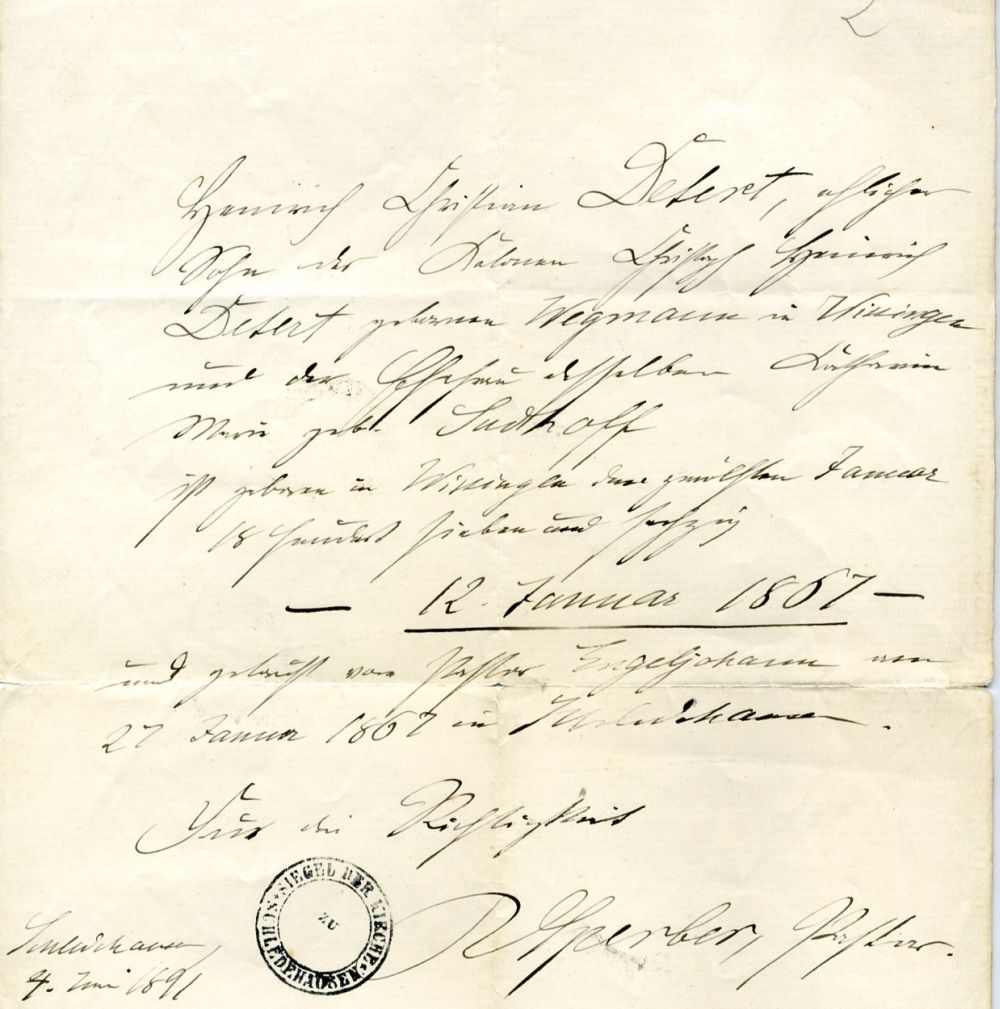 2
Heinrich Christian Detert, ehelicher
Sohn des Kolonen Christoph Heinrich
Detert geborenen Wegmann in Wissingen
und der Ehefrau desselben Katharine
Marie geb. Sudhoff
ist geboren in Wissingen den zwölften Januar
18 hundert sieben und sechzig
— 12. Januar 1867 —
und getauft von Pastor Engeljohann am
27 Januar 1867 in Schledehausen.
Für die Richtigkeit
SIEGEL DER KIRCHE
ZU
SCHLEDEHAUSEN
Sperber, Pastor.
Schledehausen,
4. Juni 1891